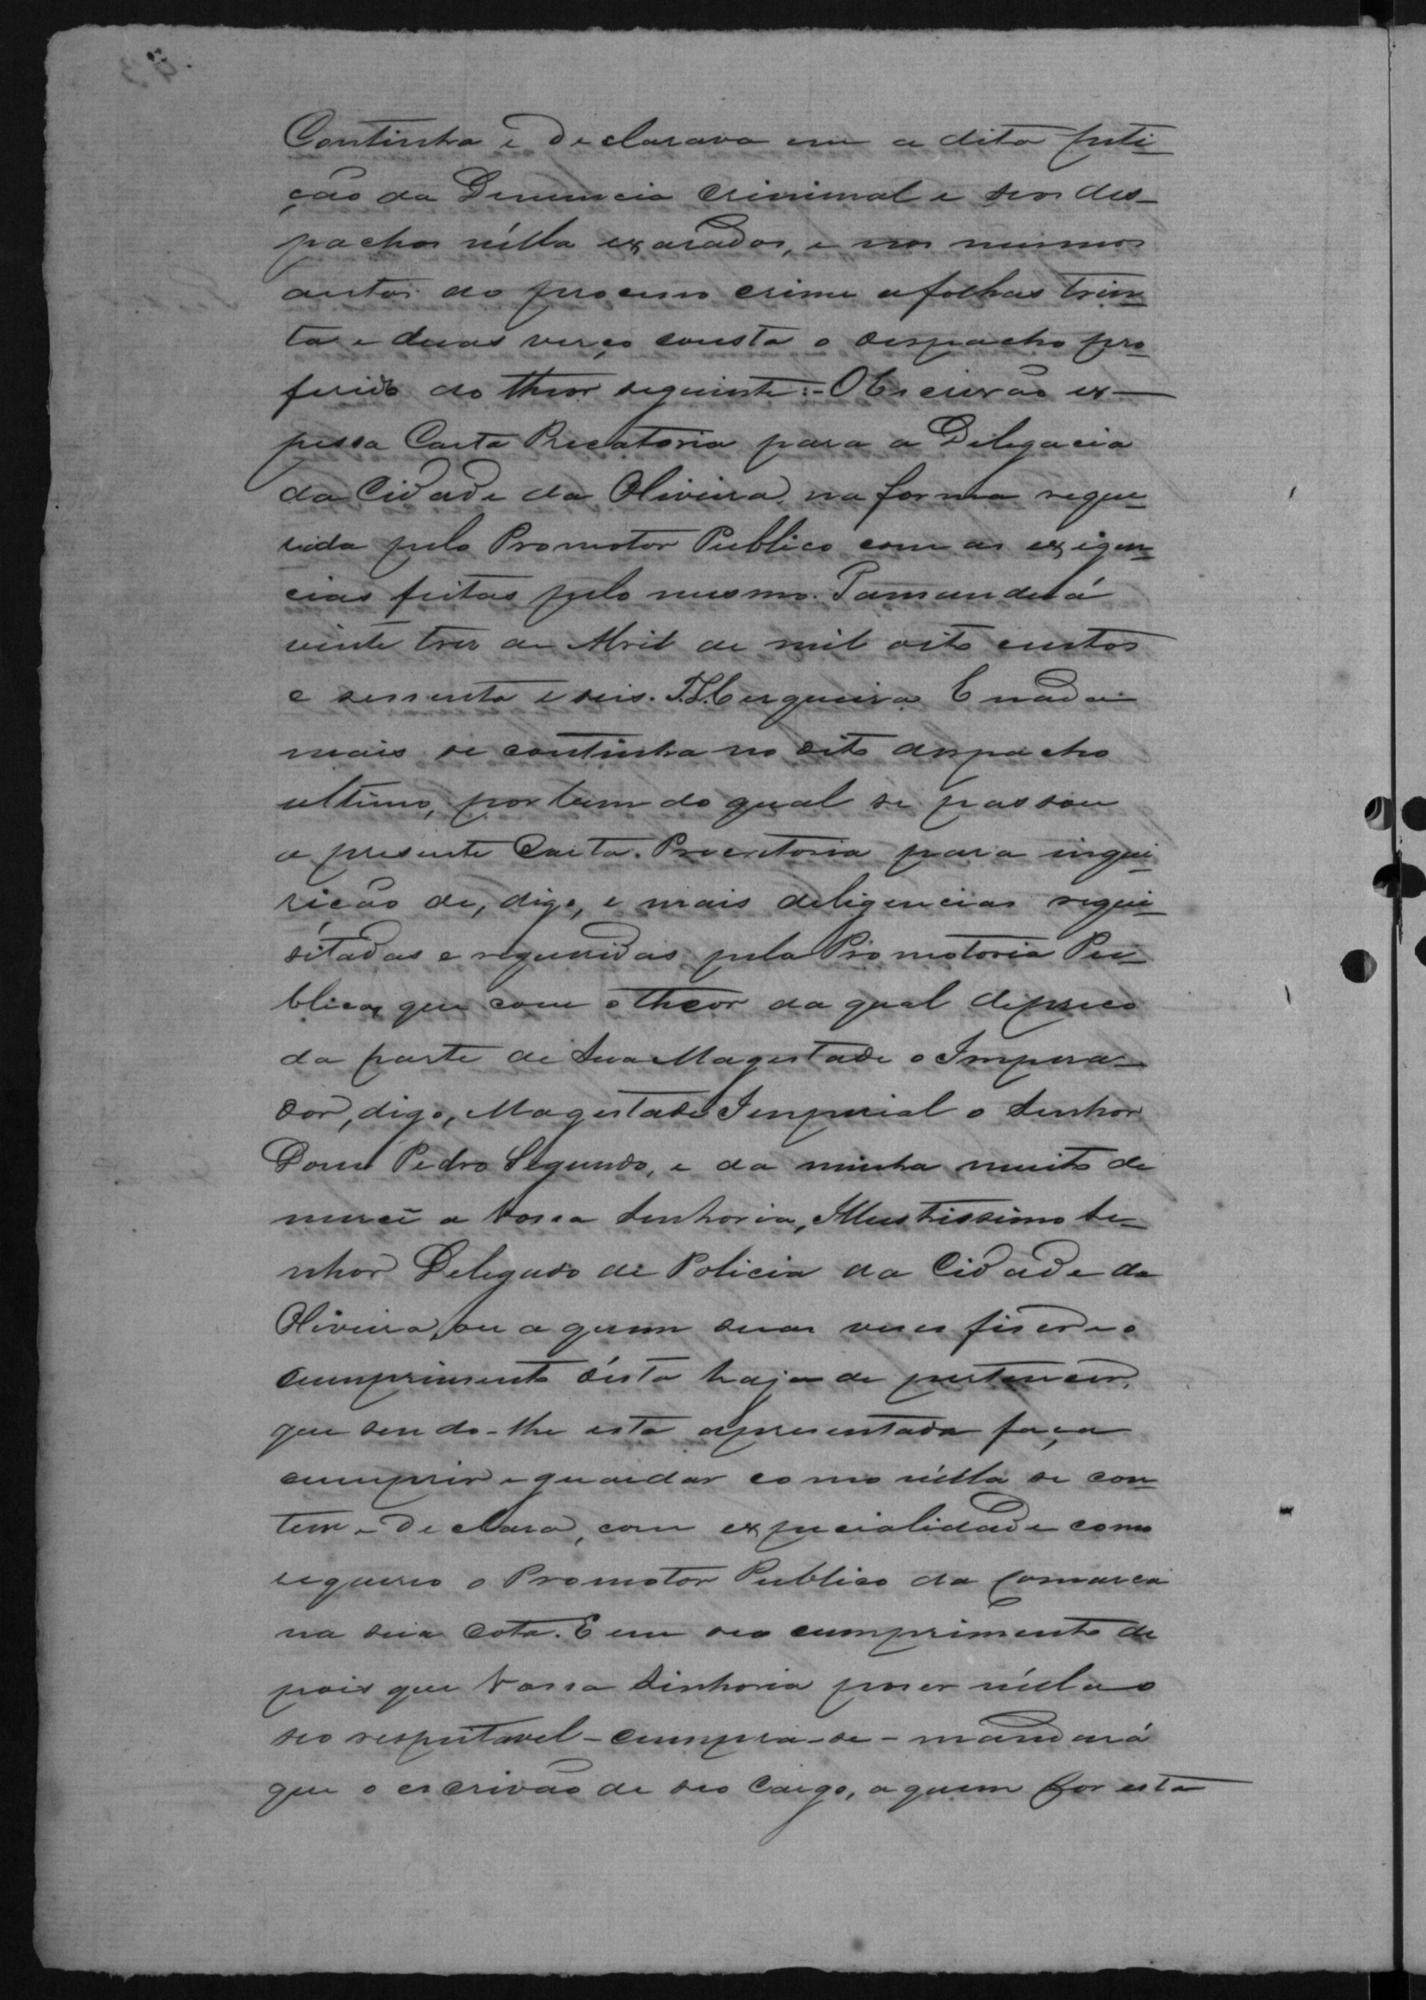 Continha e declarava em a dita peti-
ção da Denuncia criminal e seos des-
pachos nélla exarados, e nos mesmos
autos do processo crime afolhas trin-
ta e duas verço consta o despacho pro-
ferido do theor seguinte:- O Escrivão ex-
pessa Carta Precatoria para a Delegacia
da Cidade da Oliveira, na forma reque-
rida pelo Promotor Publico com as exigen-
cias feitas pelo mesmo. Tamanduá
vinte tres de Abril de mil oito centos
e sessenta e seis. Cerqueira E nada
mais se continha no dito despacho
ultimo, por bem do qual se passou
a presente Carta Precatoria para inqui-
rição de, digo, e mais deligencias requi-
sitadas e requeridas pela Promotoria Pu-
blica, que com o theor da qual depreco
da parte de Sua Magestade o Impera-
dor, digo, Magestade Imperial o Senhor
Dom Pedro Segundo, e da minha muito de
mercê a Vossa Senhoria, Illustrissimo Se-
nhor Delegado de Policia da Cidade da
Oliveira, ou a quem suas veses fiser e o
cumprimento désta haja de pertencer,
que sendo-lhe esta apresentada faça
cumprir e guardar como nélla se con-
tem e declara, com expecialidade como
requereo o Promotor Publico da Comarca
na sua cota. E em seo cumprimento de
pois que Vossa Senhoria poser néla o
seo respeitavel - cumpra-se - mandará
que o escrivão de seo cargo, a quem for esta